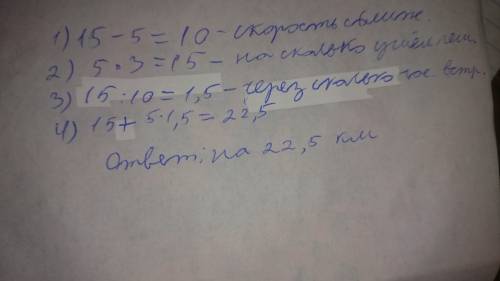 1) 15 - 5 = 10 - скорость сближ.
2) 5 · 3 = 15 - на сколько ушёл пеш.
3) 15 : 10 = 1,5 - через сколько час. встр.
4) 15 + 5 · 1,5 = 22,5
Ответ: на 22,5 км